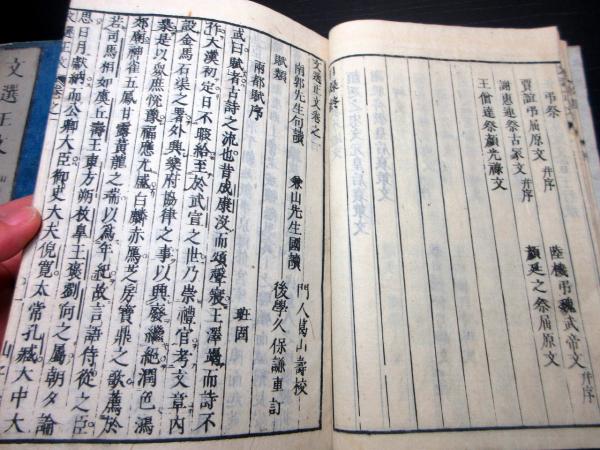 弔祭
賈誼弔屈原文 并序
謝惠連祭古冢文 并序
王僧達祭顔光祿文
陸機弔魏武帝文 并序
顔延之祭屈原文
文選正文卷之一
南郭先生句讀
兼山先生國讀
門人葛山壽校
後學久保謙重訂
賦類
兩都賦序
班固
或曰賦者古詩之流也昔成康没而頌聲寢王澤竭而詩不
作大漢初定日不暇給至於武宣之世乃崇禮官考文章内
設金馬石渠之署外興樂府協律之事以興廢繼絶潤色鴻
業是以衆庶恱豫福應尤盛白麟赤鴈芝房寶鼎之歌薦於
郊廟神雀五鳳甘露黄龍之瑞以爲年紀故言語侍從之臣
若司馬相如虞丘壽王東方朔枚臯王襃劉向之屬朝夕論
思日月獻納而公卿大臣御史大夫倪寬太常孔臧大中大
文選正文 卷之一
文選正文